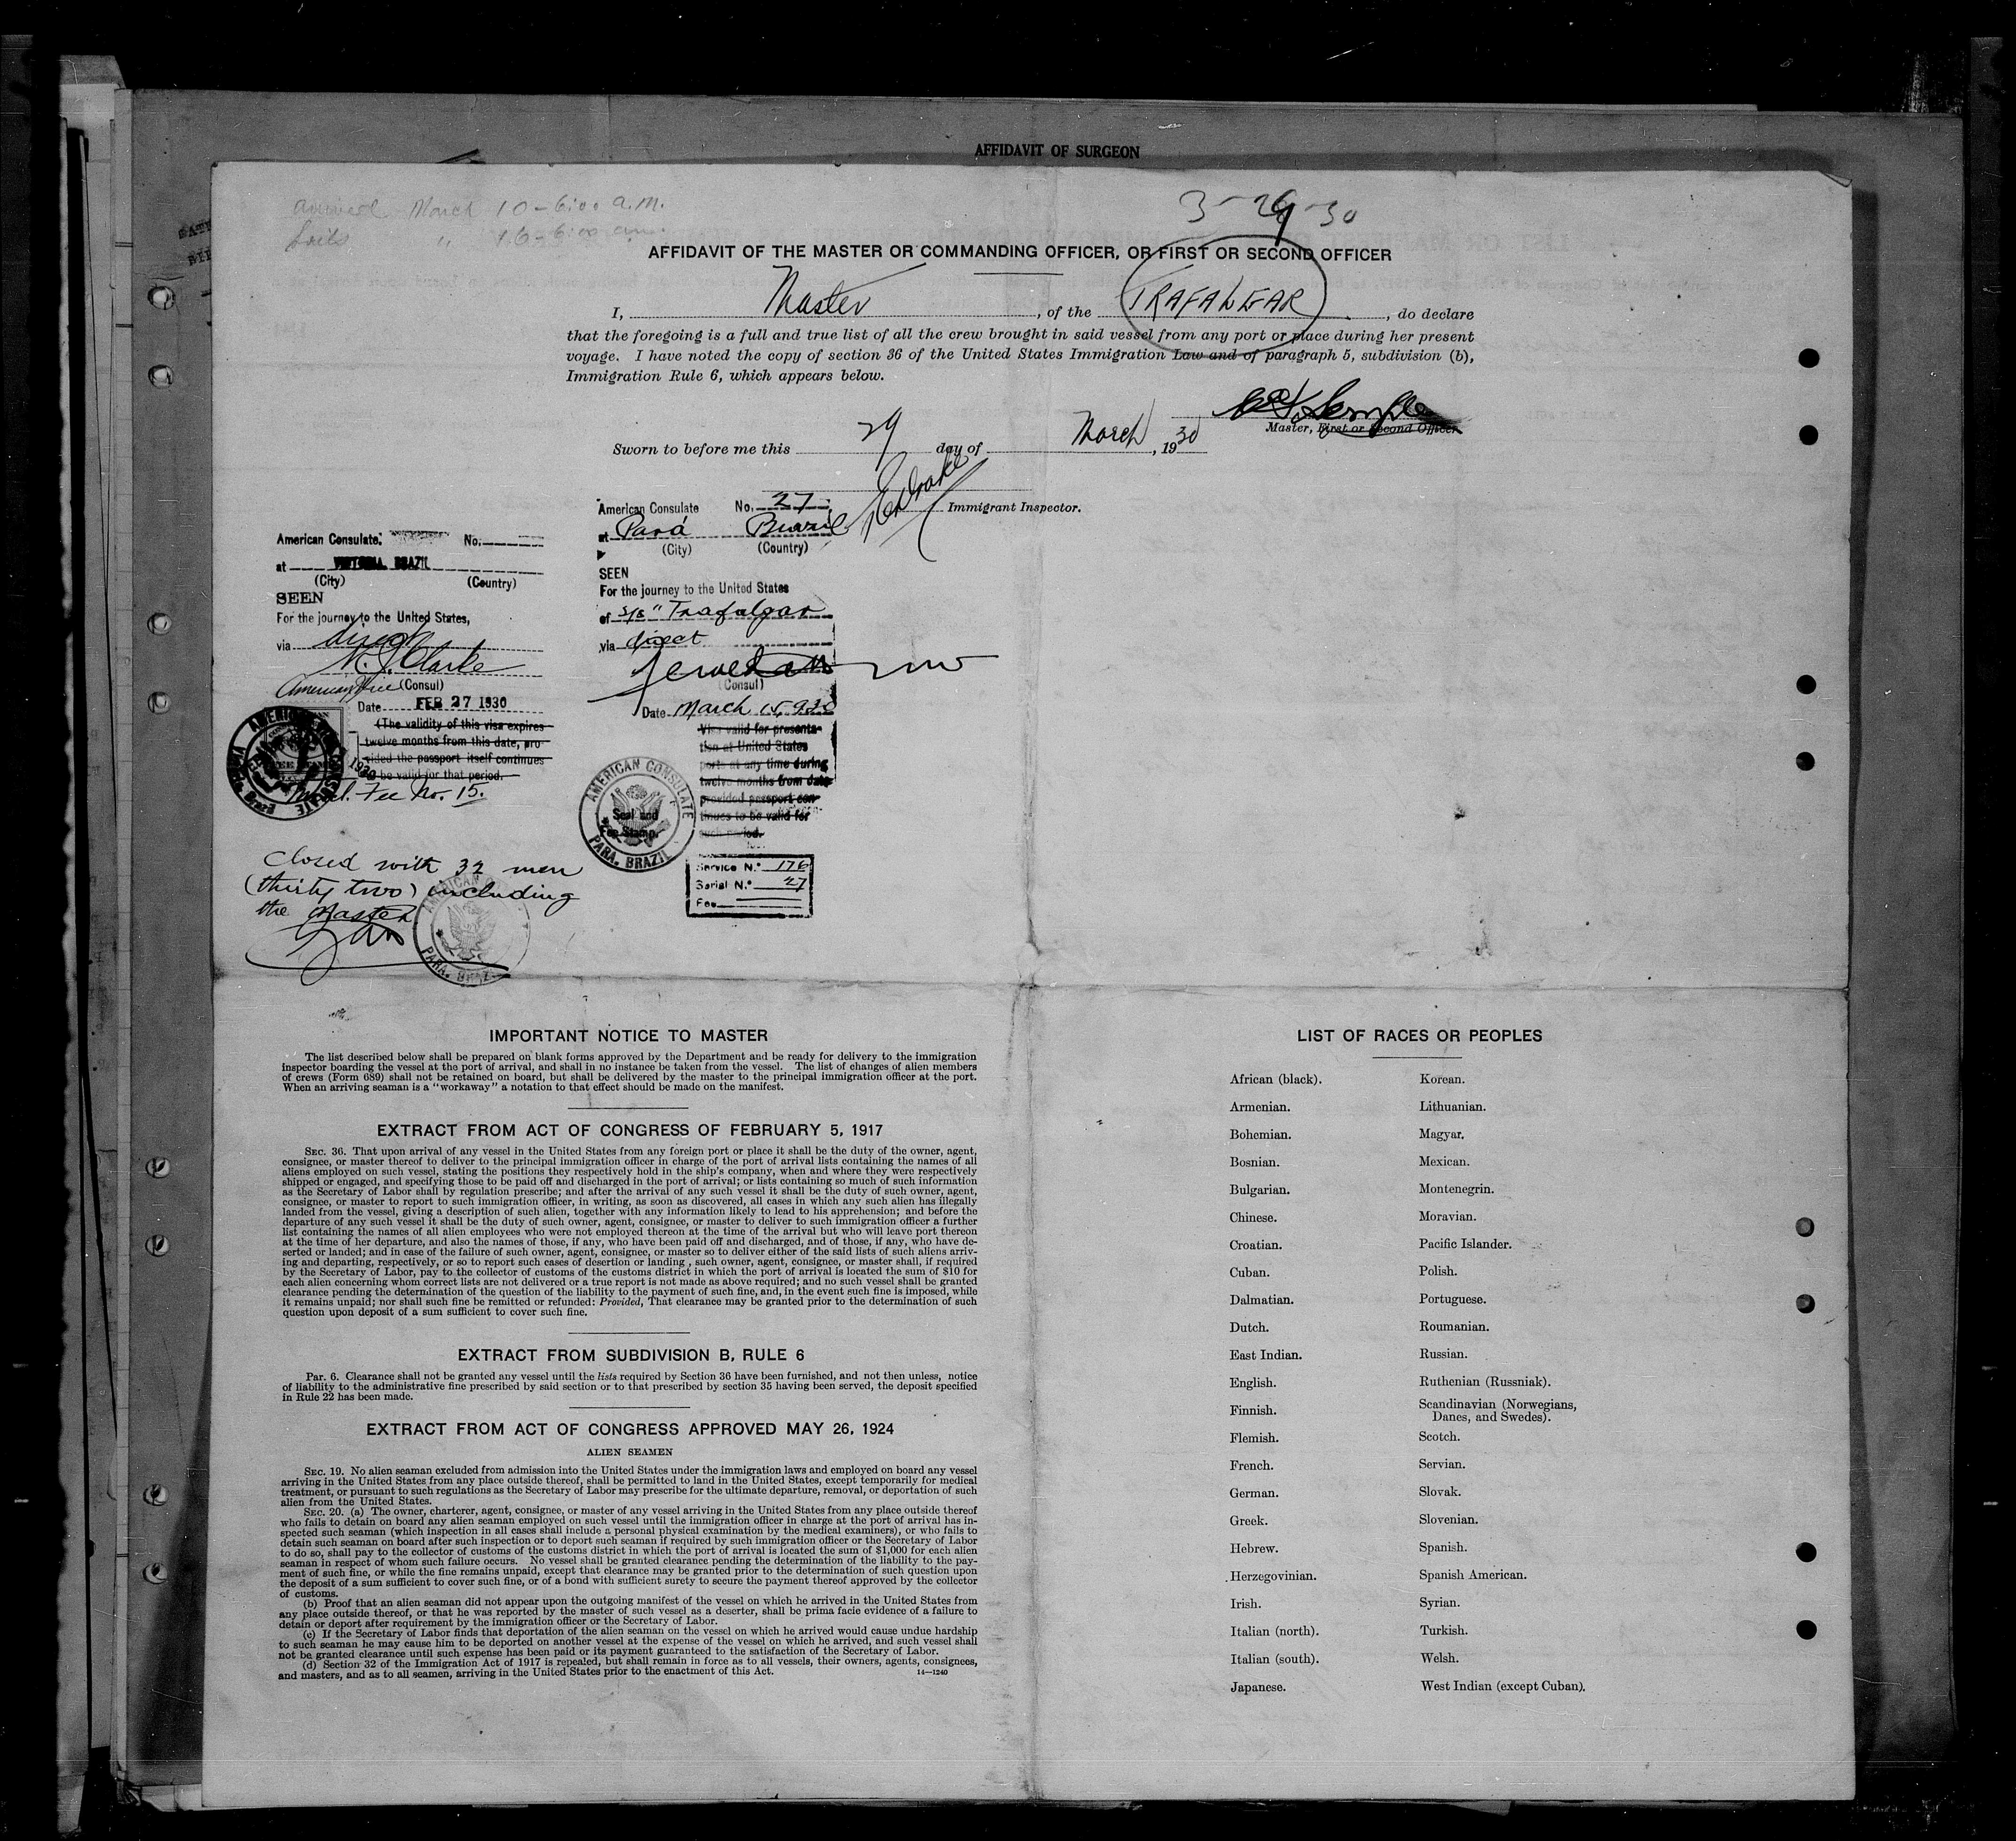 AFFIDAVIT OF SURGEON
arrived March 10 - 6:00 a.m.
Sails " 16 - 6:00 am.
3-29-30
AFFIDAVIT OF THE MASTER OR COMMANDING OFFICER, OR FIRST OR SECOND OFFICER
I, Master, of the TRAFALGAR, do declare
that the foregoing is a full and true list of all the crew brought in said vessel from any port or place during her present
voyage. I have noted the copy of section 36 of the United States Immigration Law and of paragraph 5, subdivision (b),
Immigration Rule 6, which appears below.
Semple
Master, First or Second Officer
Sworn to before me this 29 day of March, 1930
Drake
Immigrant Inspector.
American Consulate No. 27
at Pará Brazil
(City) (Country)
SEEN
For the journey to the United States
of S/S "Trafalgar
via direct
(Consul)
Date March 15, 1930
Visa valid for presenta-
tion at United States
ports at any time during
twelve months from date
provided passport con-
tinues to be valid for
such period.
AMERICAN CONSULATE
Seal and
Fee Stamp.
PARA, BRAZIL
Service N.º 176
Serial N.º 27
Fee
American Consulate, No.
at VICTORIA, BRAZIL
(City) (Country)
SEEN
For the journey to the United States,
via direct
N.J. Clarke
American Vice (Consul)
Date FEB 27 1930
(The validity of this visa expires
twelve months from this date, pro-
vided the passport itself continues
to be valid for that period.
Fee No. 15.
closed with 32 men
(thirty two) including
the Master
AMERICAN
PARA, BRAZ
IMPORTANT NOTICE TO MASTER
The list described below shall be prepared on blank forms approved by the Department and be ready for delivery to the immigration
inspector boarding the vessel at the port of arrival, and shall in no instance be taken from the vessel. The list of changes of alien members
of crews (Form 689) shall not be retained on board, but shall be delivered by the master to the principal immigration officer at the port.
When an arriving seaman is a "workaway" a notation to that effect should be made on the manifest.
EXTRACT FROM ACT OF CONGRESS OF FEBRUARY 5, 1917
SEC. 36. That upon arrival of any vessel in the United States from any foreign port or place it shall be the duty of the owner, agent,
consignee, or master thereof to deliver to the principal immigration officer in charge of the port of arrival lists containing the names of all
aliens employed on such vessel, stating the positions they respectively hold in the ship's company, when and where they were respectively
shipped or engaged, and specifying those to be paid off and discharged in the port of arrival; or lists containing so much of such information
as the Secretary of Labor shall by regulation prescribe; and after the arrival of any such vessel it shall be the duty of such owner, agent,
consignee, or master to report to such immigration officer, in writing, as soon as discovered, all cases in which any such alien has illegally
landed from the vessel, giving a description of such alien, together with any information likely to lead to his apprehension; and before the
departure of any such vessel it shall be the duty of such owner, agent, consignee, or master to deliver to such immigration officer a further
list containing the names of all alien employees who were not employed thereon at the time of the arrival but who will leave port thereon
at the time of her departure, and also the names of those, if any, who have been paid off and discharged, and of those, if any, who have de-
serted or landed; and in case of the failure of such owner, agent, consignee, or master so to deliver either of the said lists of such aliens arriv-
ing and departing, respectively, or so to report such cases of desertion or landing , such owner, agent, consignee, or master shall, if required
by the Secretary of Labor, pay to the collector of customs of the customs district in which the port of arrival is located the sum of $10 for
each alien concerning whom correct lists are not delivered or a true report is not made as above required; and no such vessel shall be granted
clearance pending the determination of the question of the liability to the payment of such fine, and, in the event such fine is imposed, while
it remains unpaid; nor shall such fine be remitted or refunded: Provided, That clearance may be granted prior to the determination of such
question upon deposit of a sum sufficient to cover such fine.
EXTRACT FROM SUBDIVISION B, RULE 6
Par. 6. Clearance shall not be granted any vessel until the lists required by Section 36 have been furnished, and not then unless, notice
of liability to the administrative fine prescribed by said section or to that prescribed by section 35 having been served, the deposit specified
in Rule 22 has been made.
EXTRACT FROM ACT OF CONGRESS APPROVED MAY 26, 1924
ALIEN SEAMEN
SEC. 19. No alien seaman excluded from admission into the United States under the immigration laws and employed on board any vessel
arriving in the United States from any place outside thereof, shall be permitted to land in the United States, except temporarily for medical
treatment, or pursuant to such regulations as the Secretary of Labor may prescribe for the ultimate departure, removal, or deportation of such
alien from the United States.
SEC. 20. (a) The owner, charterer, agent, consignee, or master of any vessel arriving in the United States from any place outside thereof
who fails to detain on board any alien seaman employed on such vessel until the immigration officer in charge at the port of arrival has in-
spected such seaman (which inspection in all cases shall include a personal physical examination by the medical examiners), or who fails to
detain such seaman on board after such inspection or to deport such seaman if required by such immigration officer or the Secretary of Labor
to do so, shall pay to the collector of customs of the customs district in which the port of arrival is located the sum of $1,000 for each alien
seaman in respect of whom such failure occurs. No vessel shall be granted clearance pending the determination of the liability to the pay-
ment of such fine, or while the fine remains unpaid, except that clearance may be granted prior to the determination of such question upon
the deposit of a sum sufficient to cover such fine, or of a bond with sufficient surety to secure the payment thereof approved by the collector
of customs.
(b) Proof that an alien seaman did not appear upon the outgoing manifest of the vessel on which he arrived in the United States from
any place outside thereof, or that he was reported by the master of such vessel as a deserter, shall be prima facie evidence of a failure to
detain or deport after requirement by the immigration officer or the Secretary of Labor.
(c) If the Secretary of Labor finds that deportation of the alien seaman on the vessel on which he arrived would cause undue hardship
to such seaman he may cause him to be deported on another vessel at the expense of the vessel on which he arrived, and such vessel shall
not be granted clearance until such expense has been paid or its payment guaranteed to the satisfaction of the Secretary of Labor.
(d) Section 32 of the Immigration Act of 1917 is repealed, but shall remain in force as to all vessels, their owners, agents, consignees,
and masters, and as to all seamen, arriving in the United States prior to the enactment of this Act. 14—1240
LIST OF RACES OR PEOPLES
African (black). Korean.
Armenian. Lithuanian.
Bohemian. Magyar.
Bosnian. Mexican.
Bulgarian. Montenegrin.
Chinese. Moravian.
Croatian. Pacific Islander.
Cuban. Polish.
Dalmatian. Portuguese.
Dutch. Roumanian.
East Indian. Russian.
English. Ruthenian (Russniak).
Finnish. Scandinavian (Norwegians,
Danes, and Swedes).
Flemish. Scotch.
French. Servian.
German. Slovak.
Greek. Slovenian.
Hebrew. Spanish.
Herzegovinian. Spanish American.
Irish. Syrian.
Italian (north). Turkish.
Italian (south). Welsh.
Japanese. West Indian (except Cuban).